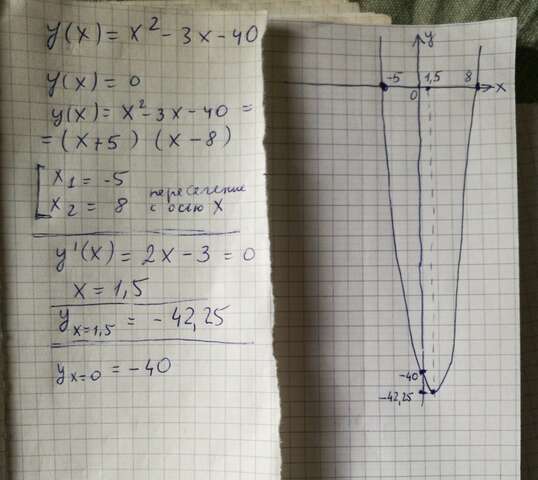 y(x) = x² - 3x - 40
y(x) = 0
y(x) = x² - 3x - 40 =
= (x + 5) (x - 8)
x₁ = -5
x₂ = 8
пересечение
с осью X
y'(x) = 2x - 3 = 0
x = 1,5
yₓ₌₁,₅ = - 42,25
yₓ₌₀ = - 40
y
-5
1,5
8
0
x
-40
-42,25